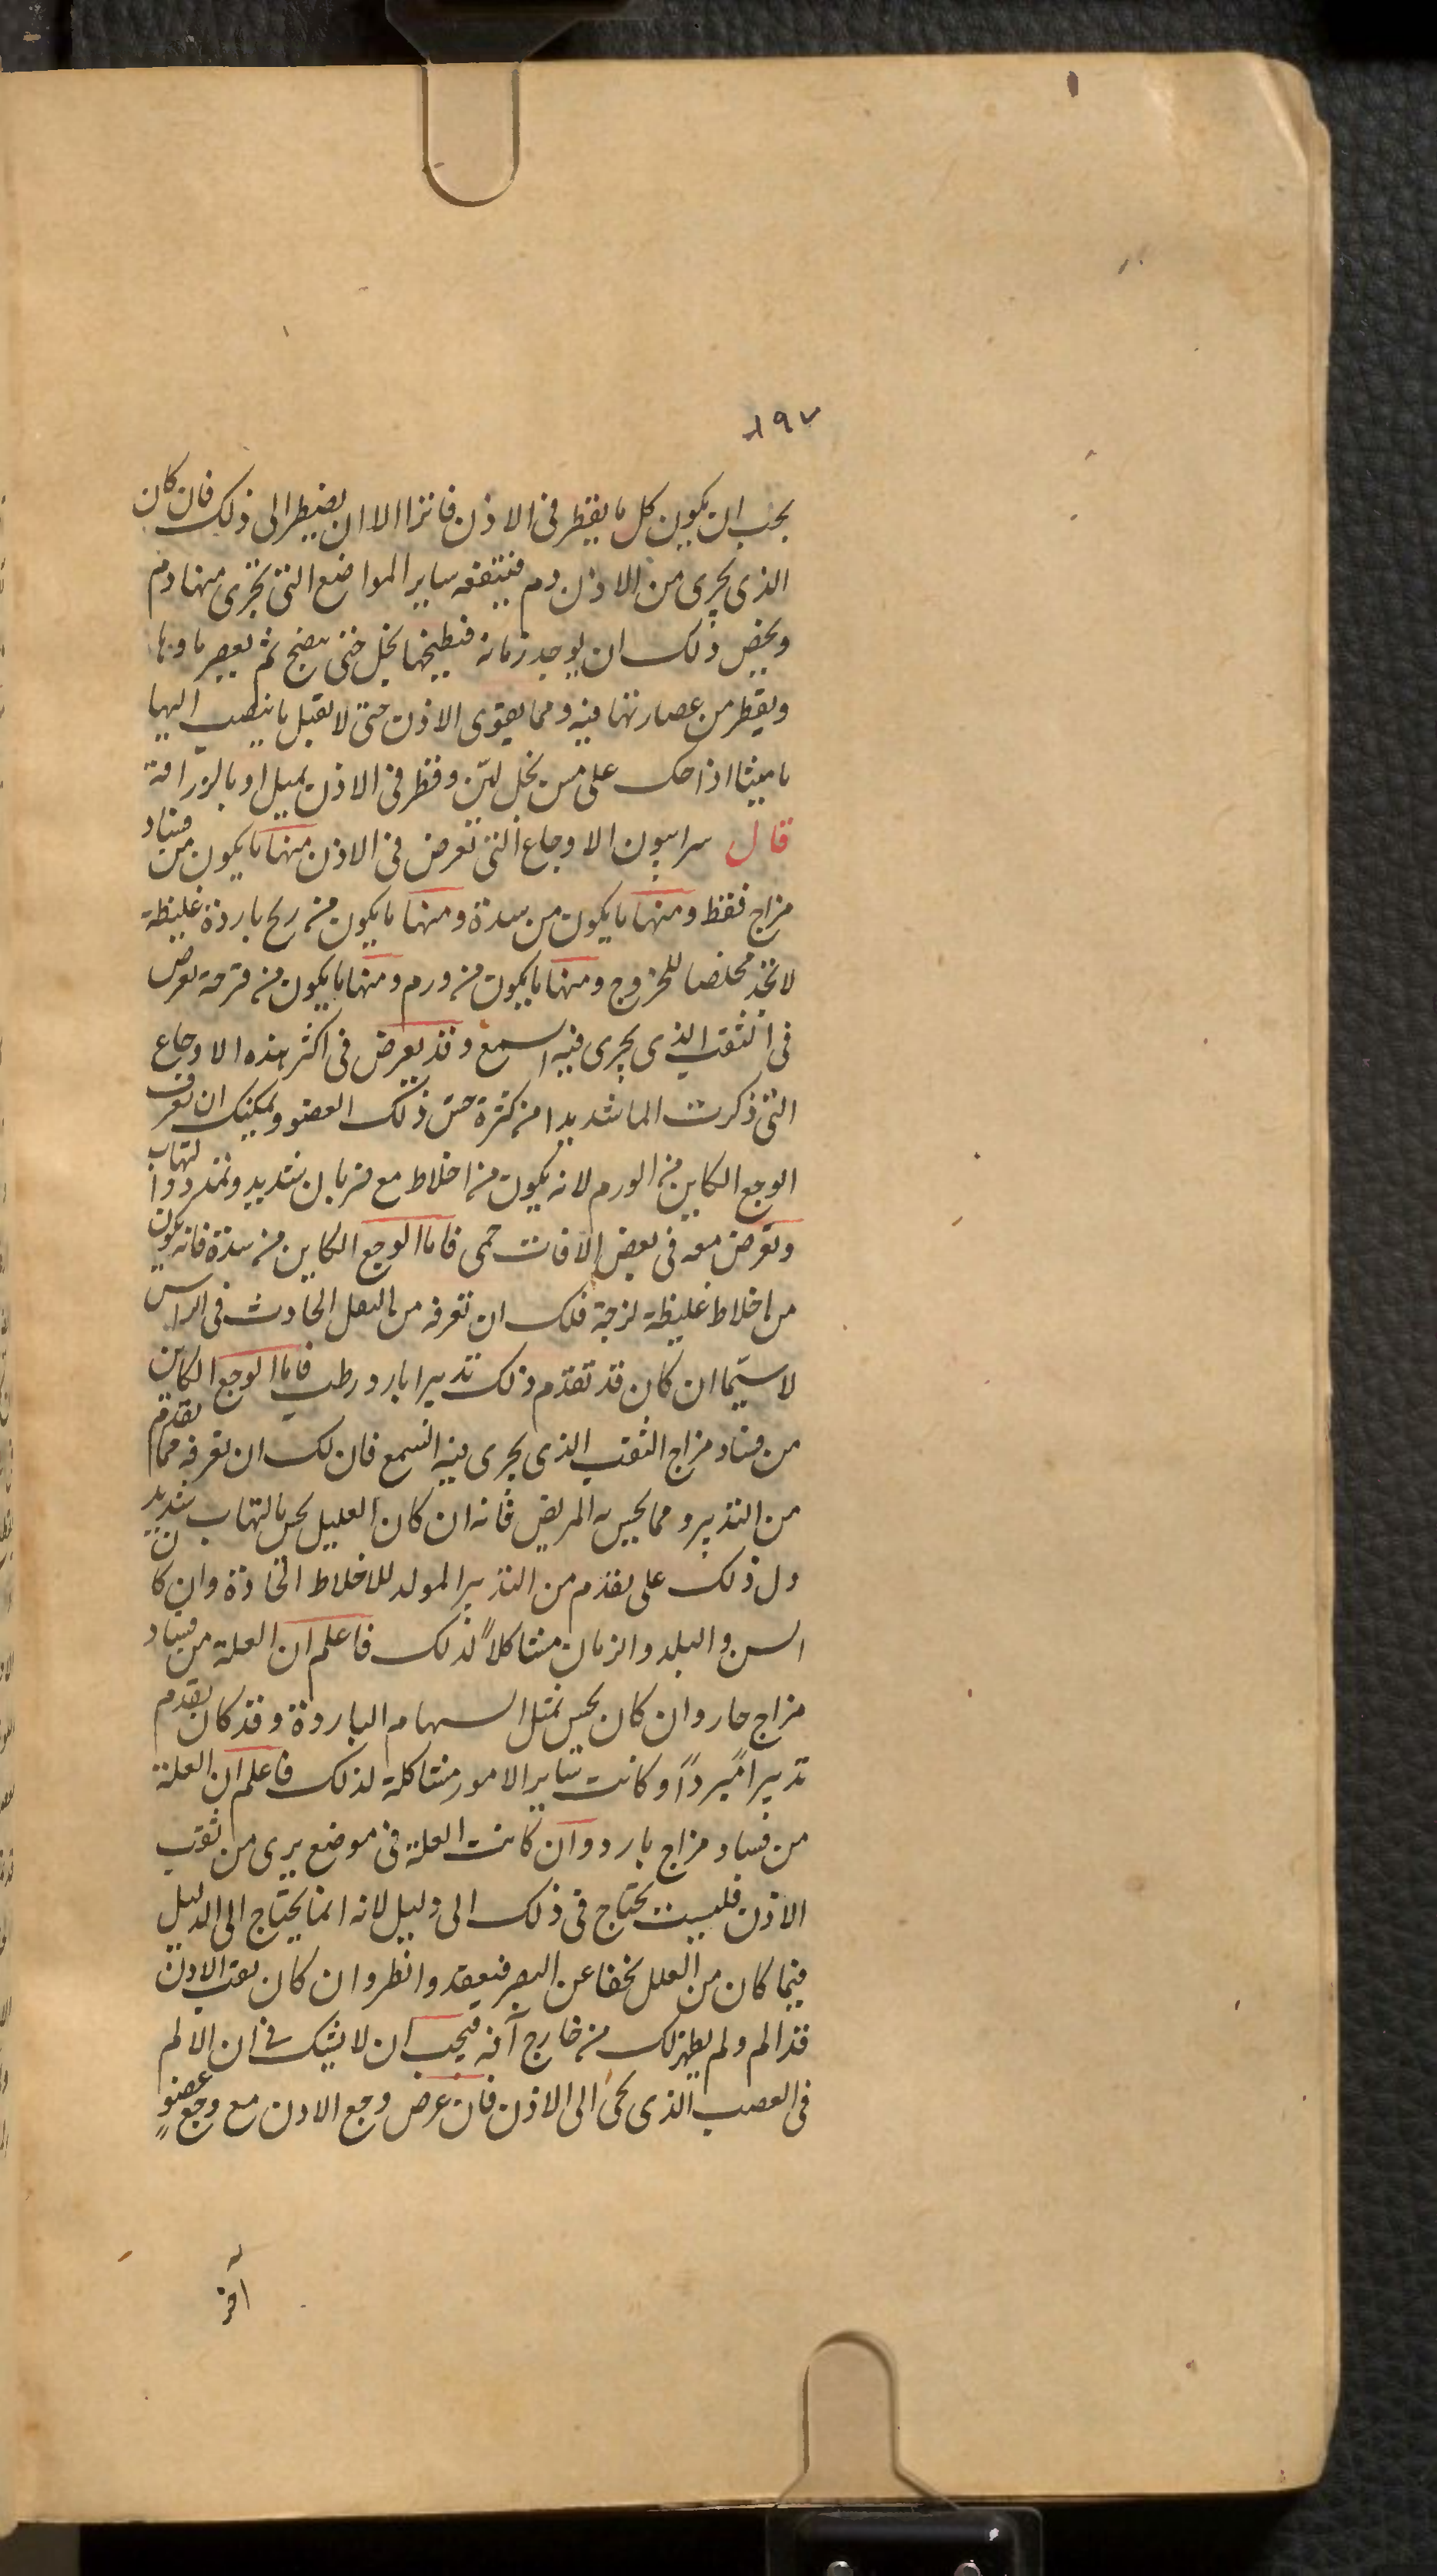 ١٩٧
يجب ان يكون كل ما يقطر فى الاذن فاترا الا ان يضطر الى ذلك فان كان
الذى يجرى من الاذن دم فينفعه ساير المواضع التى يجرى منها دم
ويخص ذلك ان يوجد رمانة فتطبخها بخل حتى ينضج ثم يعصر ماوها
ويقطر من عصارتها فيه ومما يقوى الاذن حتى لا يقبل ما ينصب اليها
ماميثا اذا حك على مسن بخل لين وقطر فى الاذن بميل او بالزراقة
قال سرابيون الاوجاع التى تعرض فى الاذن منها ما يكون من فساد
مزاج فقط ومنها ما يكون من سدة ومنها ما يكون من ريح باردة غليظة
لا تجد مخلصا للخروج ومنها ما يكون من ورم ومنها ما يكون من قرحة تعرض
فى الثقب الذى يجرى فيه السمع وقد يعرض فى اكثر هذه الاوجاع
التى ذكرت الما شديدا من كثرة حس ذلك العضو ويمكنك ان تعرف
الوجع الكاين من الورم لانه يكون من اخلاط مع ضربان شديد وتمدد والتهاب
وتعرض معه فى بعض الافات حمى فاما الوجع الكاين من سدة فانه يكون
من اخلاط غليظة لزجة فلك ان تعرفه من الثقل الحادث فى الراس
لا سيما ان كان قد تقدم ذلك تدبيرا بارد رطب فاما الوجع الكاين
من فساد مزاج الثقب الذى يجرى فيه السمع فان لك ان تعرفه مما تقدم
من التدبير ومما يحس به المريض فانه ان كان العليل يحس بالتهاب شديد
دل ذلك على تقدم من التدبير المولد للاخلاط الحادة وان كان
السن والبلد والزمان مشاكلاً لذلك فاعلم ان العلة من فساد
مزاج حار وان كان يحس بمثل السهام الباردة وقد كان تقدم
تدبيراً مبرداً وكانت ساير الامور مشاكلة لذلك فاعلم ان العلة
من فساد مزاج بارد وان كانت العلة فى موضع يرى من ثقب
الاذن فليست يحتاج فى ذلك الى دليل لانه انما يحتاج الى الدليل
فيما كان من العلل يخفا عن البصر فتفقد وانظر وان كان ثقب الاذن
قد الم ولم يظهر لك من خارج آفة فيجب ان لا يشك فى ان الالم
فى العصب الذى يجىء الى الاذن فان عرض وجع الاذن مع وجع عضوٍ
اخر